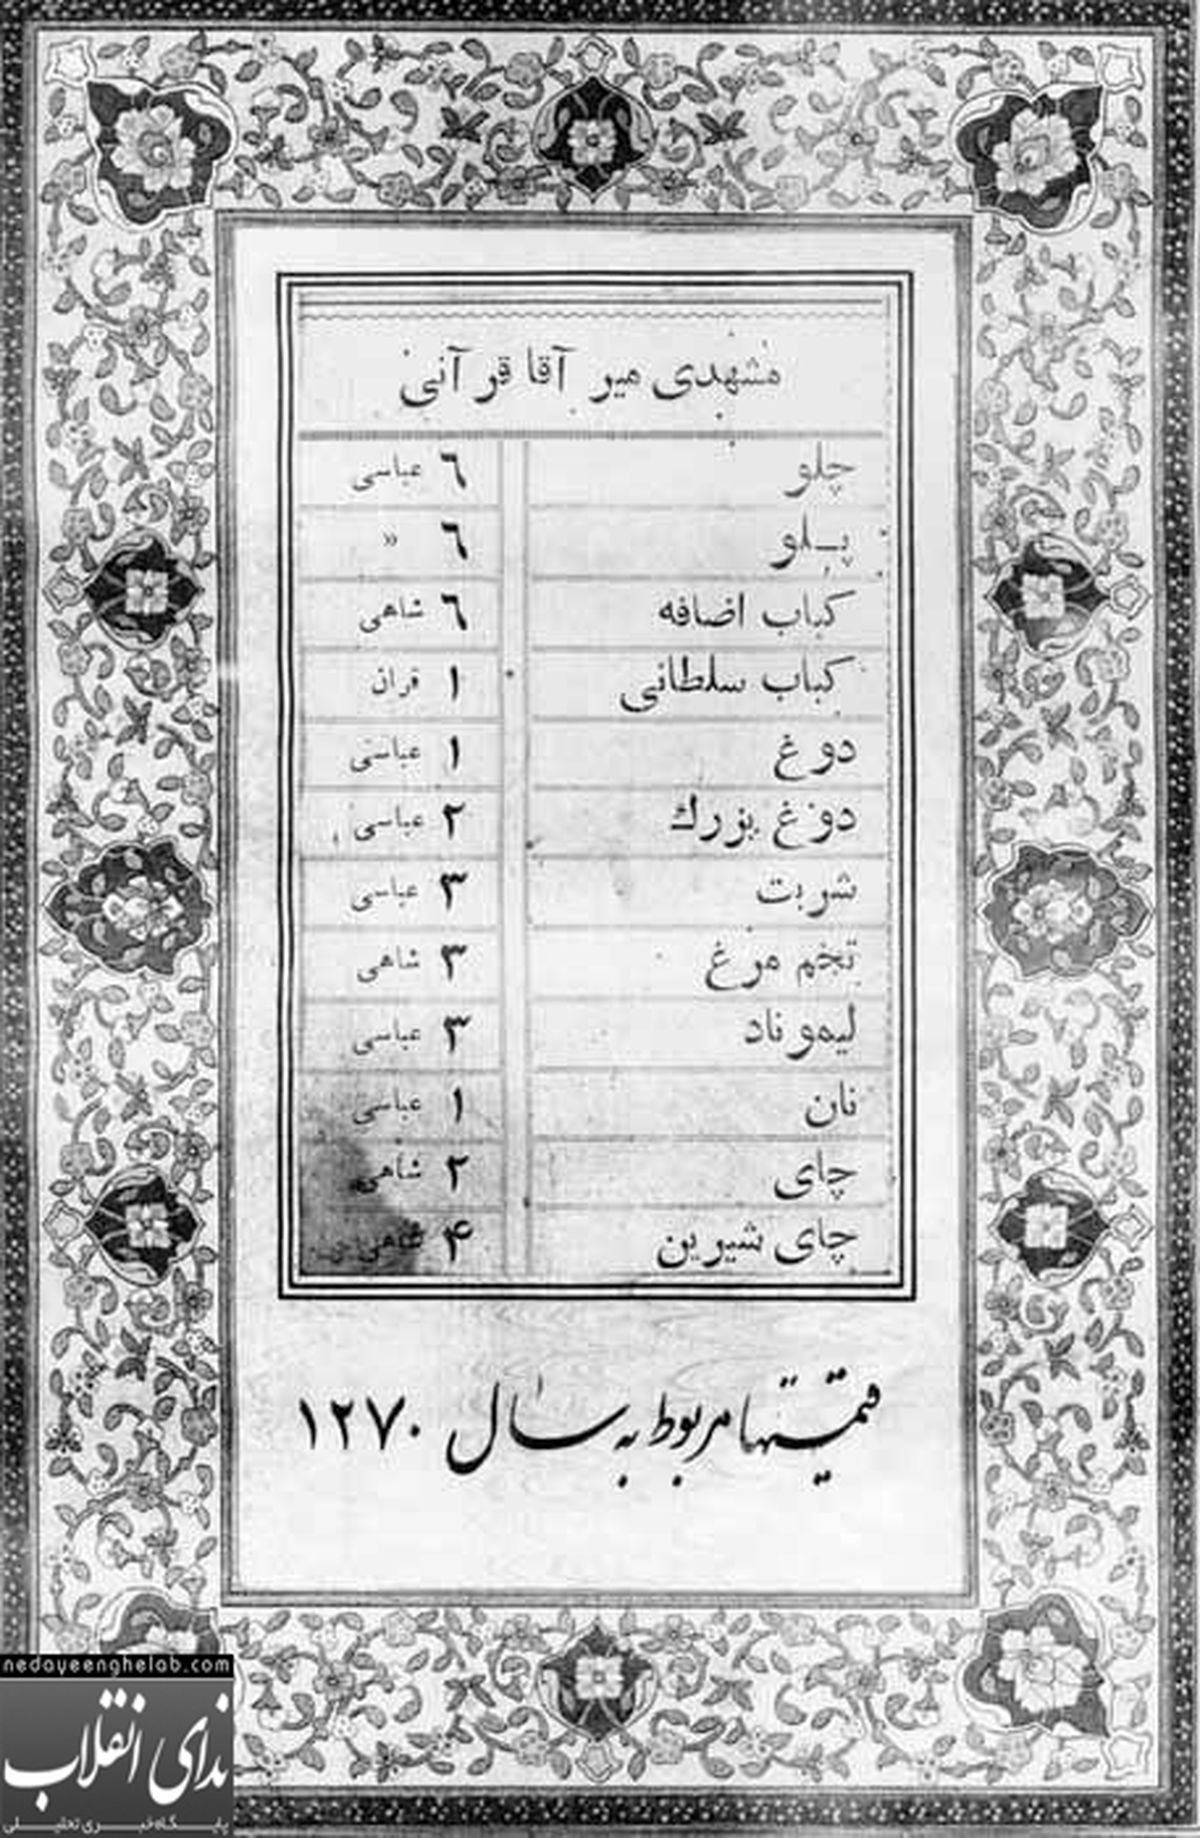 مشهدی میر آقا قرآنی
چلو ٦ عباسی
پلو ٦ »
کباب اضافه ٦ شاهی
کباب سلطانی ۱ قران
دوغ ۱ عباسی
دوغ بزرك ۲ عباسی
شربت ۳ عباسی
تخم مرغ ۳ شاهی
لیموناد ۳ عباسی
نان ۱ عباسی
چای ۲ شاهی
چای شیرین ۴ شاهی
قیمتها مربوط به سال ۱۲۷۰
nedayeenghelab.com
ندای انقلاب
پایگاه خبری تحلیلی